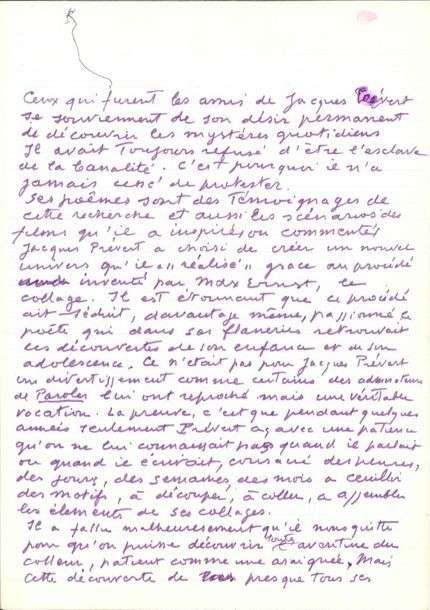 Ceux qui furent les amis de Jacques Prévert
se souviennent de son désir permanent
de découvrir les mystères quotidiens
Il avait toujours refusé d'être l'esclave
de la banalité. C'est pourquoi il n'a
jamais cessé de protester.
Ses poèmes sont des témoignages de
cette recherche et aussi les scénarios des
films qu'il a inspirés ou commentés
Jacques Prévert a choisi de créer un nouvel
univers qu'il a "réalisé" grace au procédé
inventé par Max Ernst, le
collage. Il est étonnant que ce procédé
ait séduit, davantage même, passionné le
poète qui dans ses flaneries retrouvait
les découvertes de son enfance et de son
adolescence. Ce n'était pas pour Jacques Prévert
un divertissement comme certains des admirateurs
de Paroles lui ont reproché mais une véritable
vocation. La preuve, c'est que pendant quelques
années seulement Prévert a, avec une patience
qu'on ne lui connaissait pas quand il parlait
ou quand il écrivait, consacré des heures,
des jours, des semaines, des mois a cueillir
des motifs, à découper, à coller, a assembler
les éléments de ses collages.
Il a fallu malheureusement qu'il nous quitte
pour qu'on puisse découvrir toute l'aventure du
colleur, patient comme une araignée, Mais
cette découverte de presque tous ses